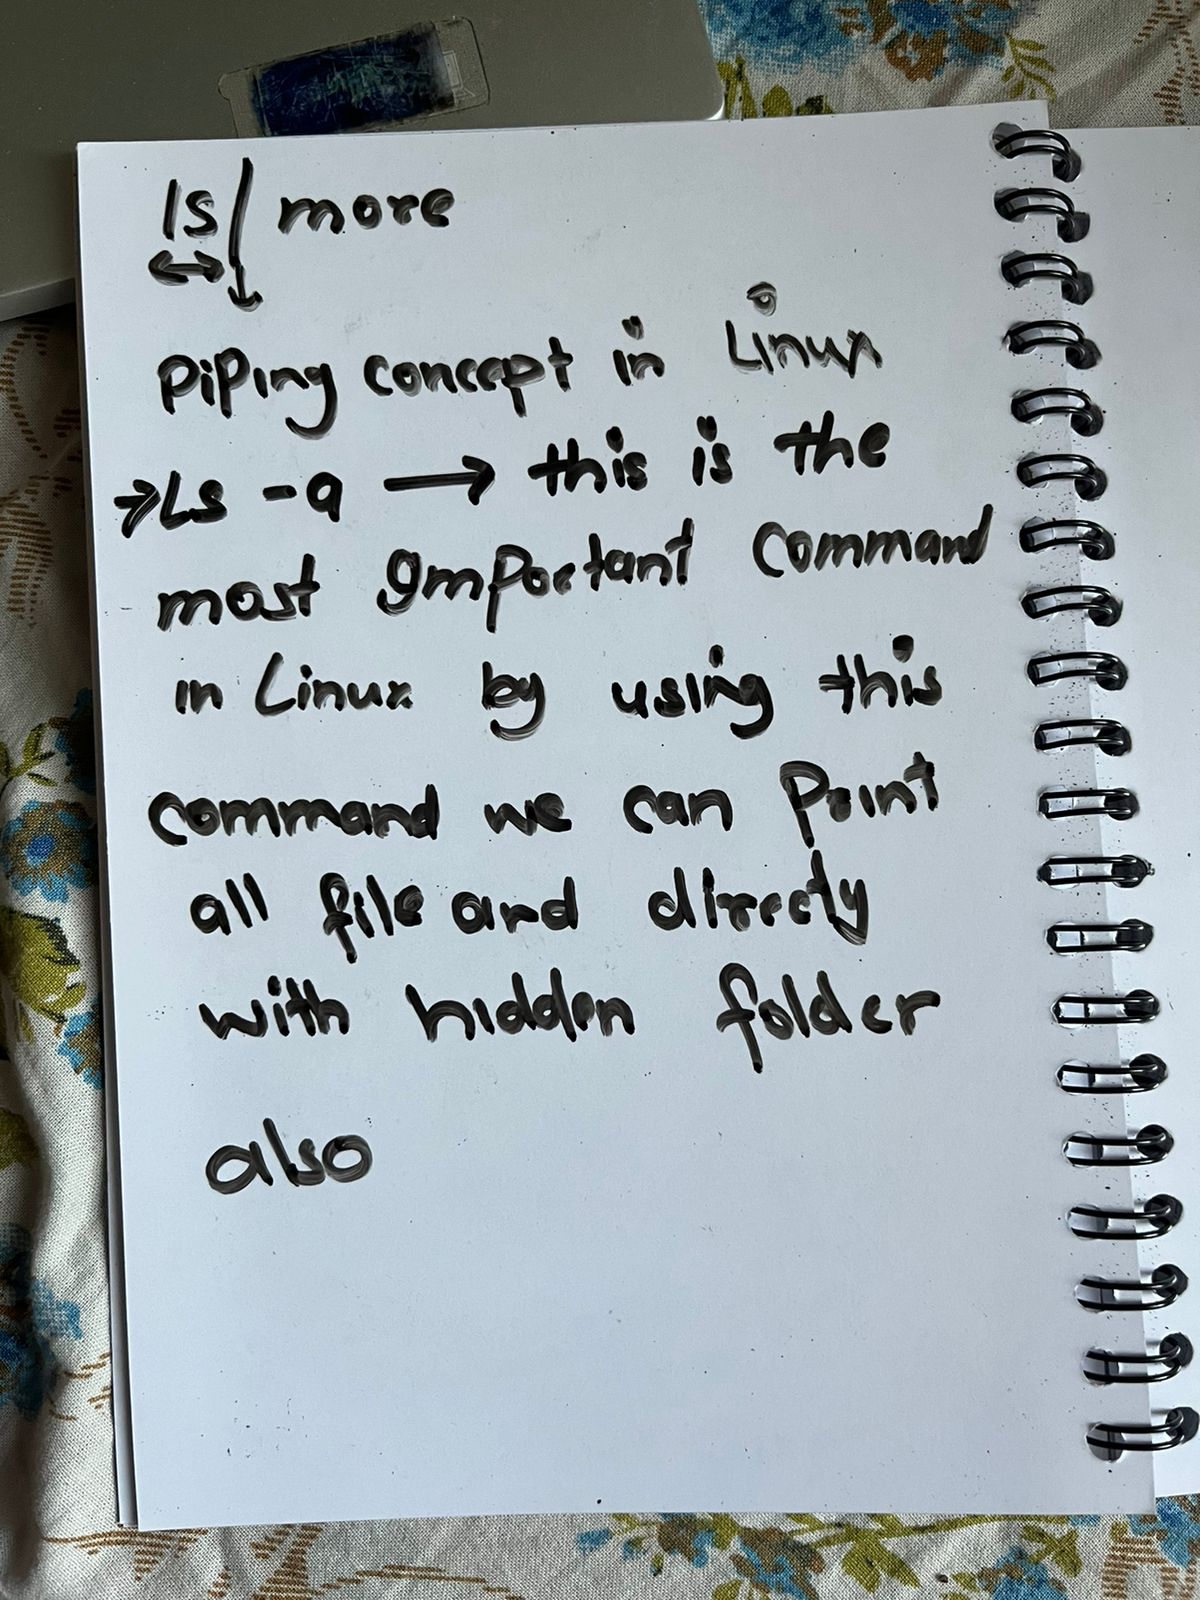 ls | more
Piping concept in Linux
→ Ls -a → this is the
most Important Command
in Linux by using this
command we can Print
all file and directy
with hidden folder
also